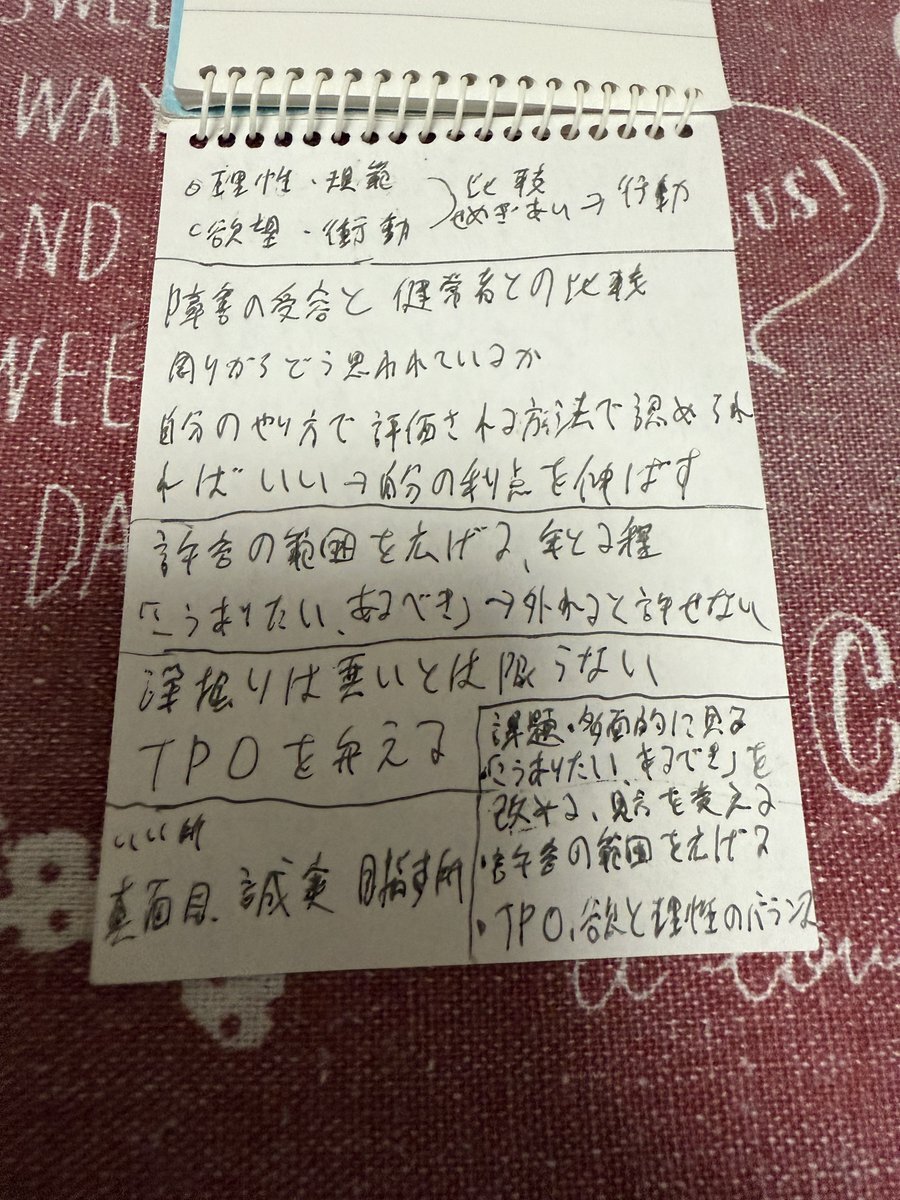 WAY
ND
WEE
DA
US!
C
a tou
○理性・規範
○欲望・衝動
比較
せめぎあい→行動
障害の受容と健常者との比較
周りからどう思われているか
自分のやり方で評価される方法で認めれ
ればいい→自分の利点を伸ばす
許容の範囲を広げる、年とる程
「こうありたい、あるべき」→外れると許せない
深掘りは悪いとは限らない
TPOを弁える
課題・多面的に見る
・「こうありたい、あるべき」を
改める、見方を変える
・許容の範囲を広げる
・TPO、欲と理性のバランス
いい所
真面目、誠実 目指す所